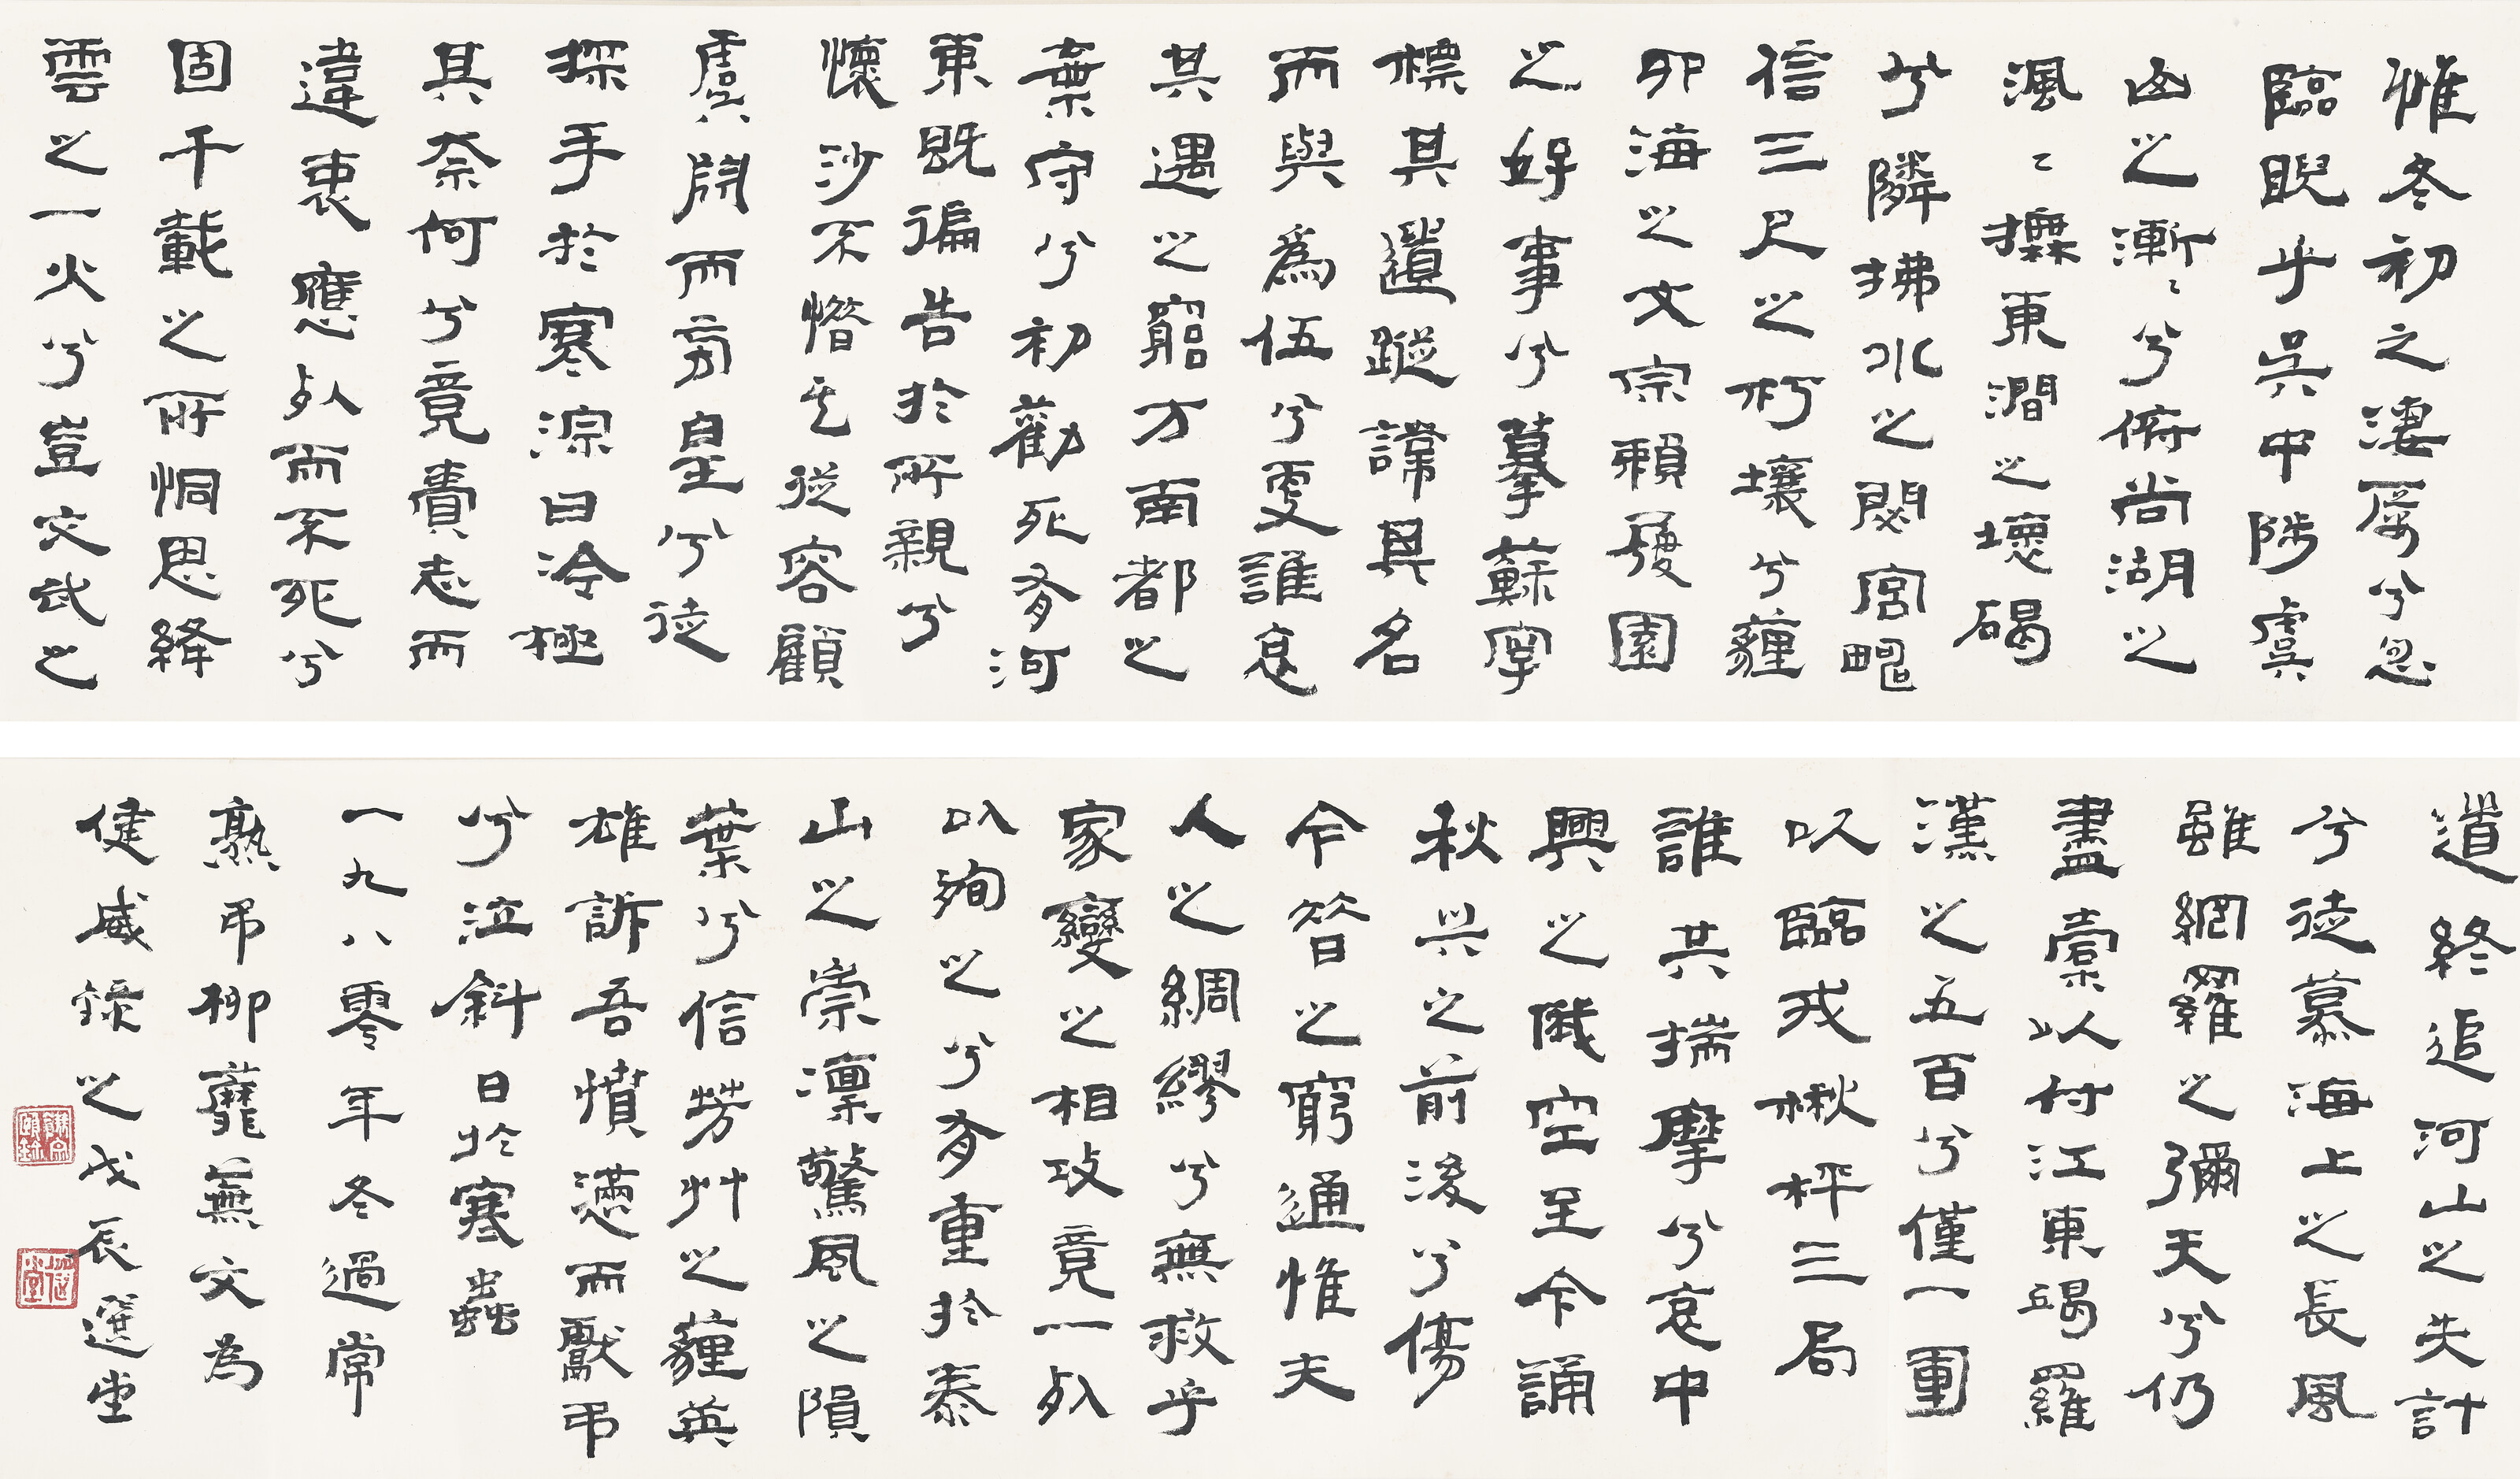 惟冬初之淒厲兮忽
臨睨乎吳中陟虞
山之漸〻兮俯尚湖之
渢〻撫東澗之壞碣
兮隣拂水之閟宮
信三尺之朽壤兮薶
海之文宗賴廢園
之好事兮摹蘇
標其遺蹤其名
而與為伍兮更誰哀
其遇之窮方南都之
棄守兮初勸死有河
東既徧告於所親兮
懷沙不其從容顧
虞淵而旁皇兮徒
探手於寒淙曰冷極
其奈何兮竟賷志而
違衷應死而不死兮
固千載之所恫思絳
雲之一火兮豈文武之
道終追河山之失計
兮徒慕海上之長風
雖網羅之彌天兮仍
盡橐以付江東竭羅
漢之五百兮僅一
以臨戎楸枰三局
誰共揣摩兮哀中
興之俄空至今誦
秋興之前後兮傷
今昔之窮通惟夫
人之綢繆兮無救乎
家變之相攻竟一死
以殉之兮有重於泰
山之崇凜驚風之隕
葉兮信芳艸之薶英
雄訴吾憤懣而獻弔
兮泣斜日於寒蟲
一九八零年冬過常
熟弔柳蘼蕪文為
健威錄之戊辰選堂
選堂